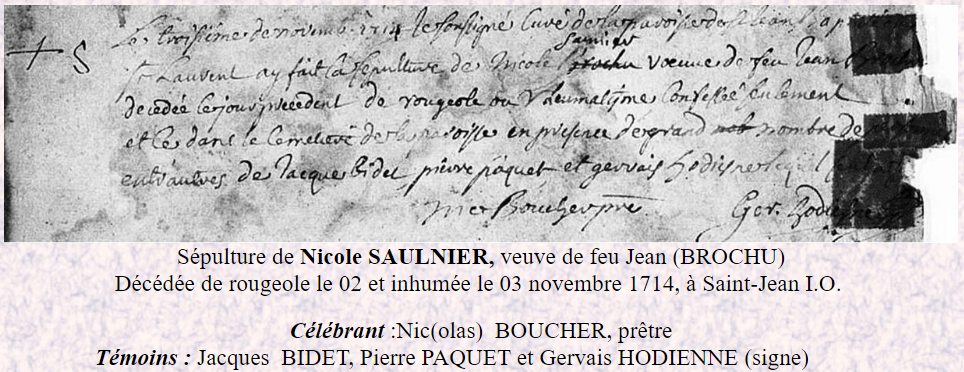 Le troisième de novemb. 1714 le soussigné Curé de la paroisse de St Jean
saunier
St Laurent ay fait la sepulture de Nicole brochu voeuve de feu Jean
decedée le jour precedent de rougeole ou confessée seulement
et ce dans le cemetiere de la paroisse en presence de grand nombre de
entr'autres de Jacque bidet, pierre paquet et gervais
Nic Boucher ptre Ger.
Sépulture de Nicole SAULNIER, veuve de feu Jean (BROCHU)
Décédée de rougeole le 02 et inhumée le 03 novembre 1714, à Saint-Jean I.O.
Célébrant :Nic(olas) BOUCHER, prêtre
Témoins : Jacques BIDET, Pierre PAQUET et Gervais HODIENNE (signe)